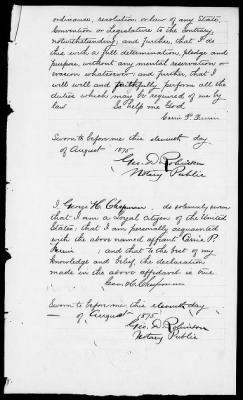 ordinance, resolution or law of any State,
Convention or Legislature to the Contrary
notwithstanding; and further, that I do
this with a full determination, pledge and
purpose, without any mental reservation or
evasion whatsoever; and further, that I
will well and faithfully perform all the
duties which may be required of me by
law So help me God
Carrie P.
Sworn to before me this eleventh day
of August 1875
Geo. D. Robinson
Notary Public
I George H. Chapman, do solemnly swear
that I am a loyal citizen of the United
States; that I am personally acquainted
with the above named affiant Carrie P.
; and that to the best of my
knowledge and belief, the declaration
made in the above affidavit is true
Geo. H. Chapman
Sworn to before me this eleventh day
of August 1875
Geo. D. Robinson
Notary Public